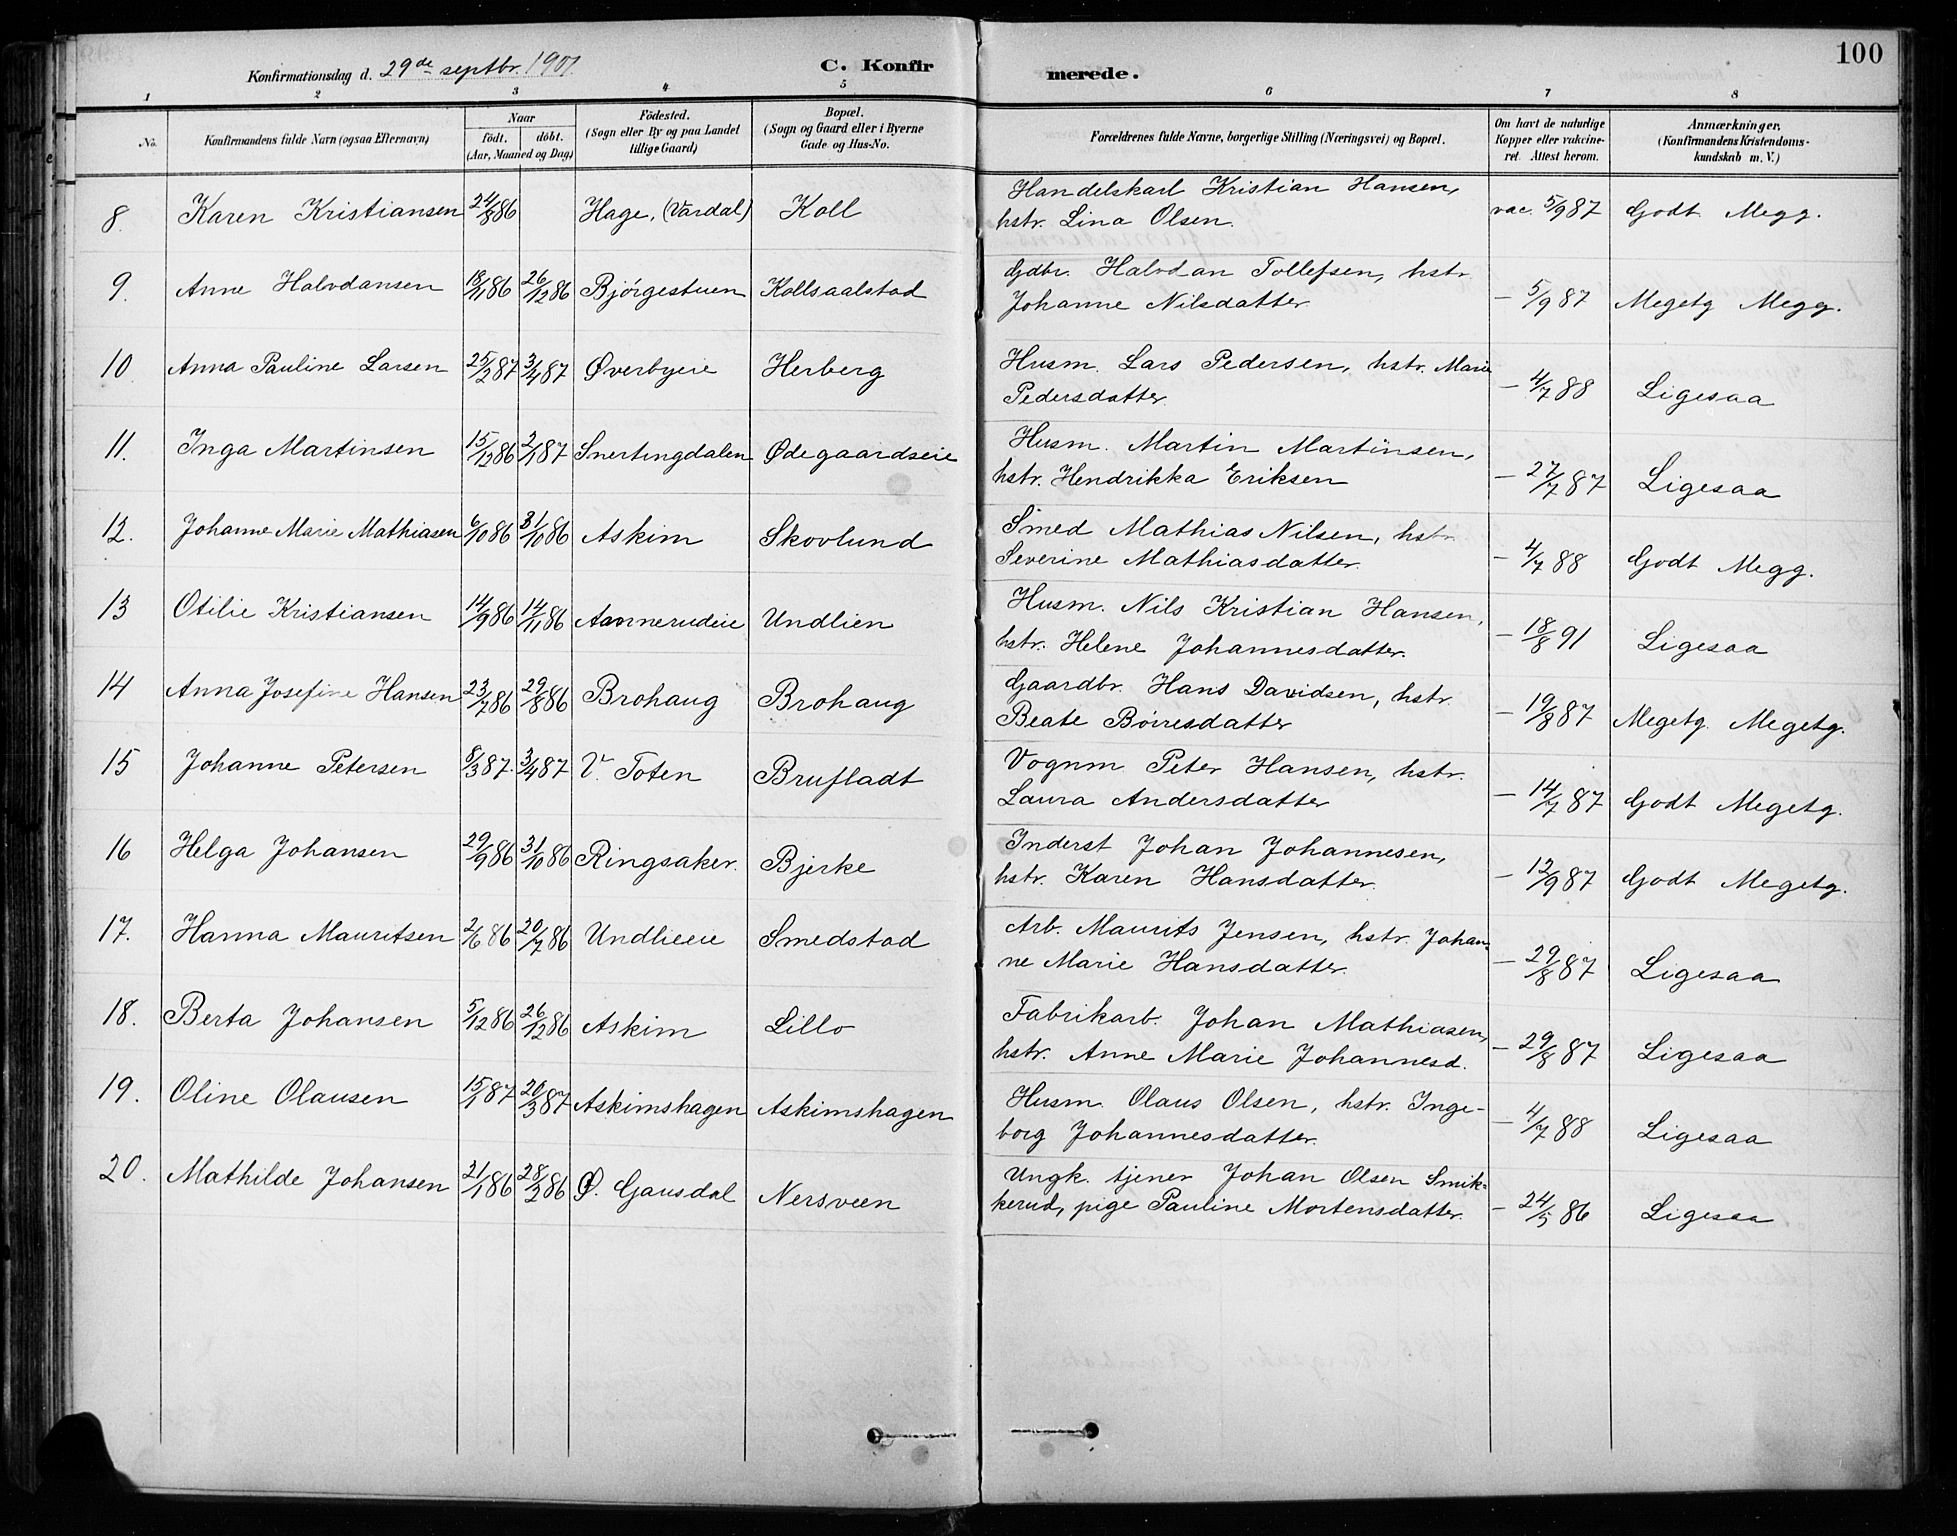 100
Konfirmationsdag d. 29de septbr. 1901.
C. Konfirmerede.
1 2 3 4 5 6 7 8
No. Konfirmandens fulde Navn (ogsaa Efternavn) Naar födt. döbt. (Aar, Maaned og Dag) Födested. (Sogn eller By og paa Landet tillige Gaard) Bopæl. (Sogn og Gaard eller i Byerne Gade og Hus-No. Forældrenes fulde Navne, borgerlige Stilling (Næringsvei) og Bopæl. Om havt de naturlige Kopper eller vakcineret. Attest herom. Anmærkninger. (Konfirmandens Kristendomskundskab m. V.)
8. Karen Kristiansen 24/8 86 Hage, (Vardal) Koll Handelskarl Kristian Hansen,
hstr. Lina Olsen. vac. 5/9 87 Godt Megg.
9. Anne Halvdansen 18/11 86 26/12 86 Bjørgestuen Kollsaalstad Gdbr. Halvdan Tollefsen, hstr.
Johanne Nilsdatter. — 5/9 87 Megetg Megg.
10. Anna Pauline Larsen 25/2 87 3/4 87 Øverbyeie Herberg Husm. Lars Pedersen, hstr. Marie
Pedersdatter. — 4/7 88 Ligesaa
11. Inga Martinsen 15/12 86 2/1 87 Snertingdalen Ødegaardseie Husm. Martin Martinsen,
hstr. Hendrikka Eriksen — 27/7 87 Ligesaa
12. Johanne Marie Mathiasen 6/10 86 31/10 86 Askim Skovlund Smed Mathias Nilsen, hstr.
Severine Mathiasdatter. — 4/7 88 Godt Megg.
13 Otilie Kristiansen 14/9 86 14/11 86 Aannerudeie Undlien Husm. Nils Kristian Hansen,
hstr. Helene Johannesdatter. — 18/8 91 Ligesaa
14 Anna Josefine Hansen 23/7 86 29/8 86 Brohaug Brohaug Gaardbr. Hans Davidsen, hstr.
Beate Børresdatter — 19/8 87 Megetg. Megetg.
15 Johanne Petersen 8/3 87. 3/4 87 V. Toten Brufladt Vognm. Peter Hansen, hstr.
Laura Andersdatter — 14/7 87 Godt Megetg.
16 Helga Johansen 29/9 86 31/10 86 Ringsaker. Bjerke Inderst Johan Johannesen,
hstr. Karen Hansdatter. — 12/9 87 Godt Megetg.
17. Hanna Mauritsen 2/6 86 20/7 86 Undlieeie Smedstad Arb. Maurits Jensen, hstr. Johan-
ne Marie Hansdatter. — 29/8 87 Ligesaa
18. Berta Johansen 5/12 86 26/12 86 Askim Lillo Fabrikarb. Johan Mathiasen,
hstr. Anne Marie Johannesd. — 29/8 87 Ligesaa
19. Oline Olausen 15/1 87 20/3 87 Askimshagen Askimshagen Husm. Olaus Olsen, hstr. Inge-
borg Johannesdatter. — 4/7 88 Ligesaa
20. Mathilde Johansen 21/1 86 28/2 86 Ø. Gausdal Nersveen Ungk. tjener Johan Olsen Smik-
kerud, pige Pauline Mortensdatter. — 24/5 86 Ligesaa